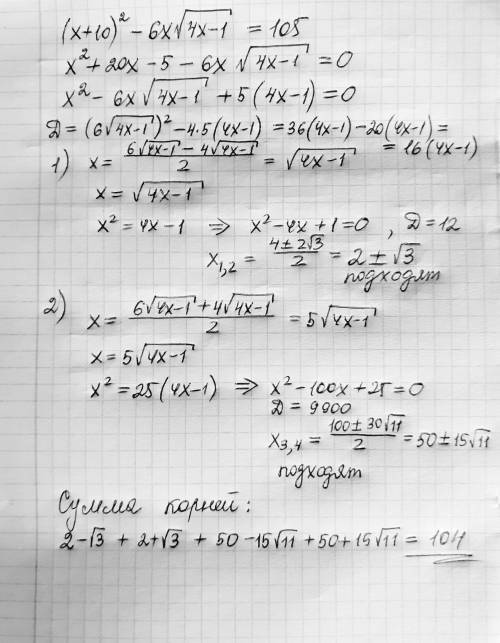 (x+10)² - 6x√(4x-1) = 105
x² + 20x - 5 - 6x √(4x-1) = 0
x² - 6x √(4x-1) + 5(4x-1) = 0
Д = (6√(4x-1))² - 4·5(4x-1) = 36(4x-1) - 20(4x-1) =
= 16(4x-1)
1) x = (6√(4x-1) - 4√(4x-1))/2 = √(4x-1)
x = √(4x-1)
x² = 4x - 1 ⇒ x² - 4x + 1 = 0 , Д = 12
x₁,₂ = (4 ± 2√3)/2 = 2 ± √3
подходят
2) x = (6√(4x-1) + 4√(4x-1))/2 = 5√(4x-1)
x = 5√(4x-1)
x² = 25(4x-1) ⇒ x² - 100x + 25 = 0
Д = 9900
x₃,₄ = (100 ± 30√11)/2 = 50 ± 15√11
подходят
Сумма корней:
2-√3 + 2+√3 + 50 - 15√11 + 50 + 15√11 = 104